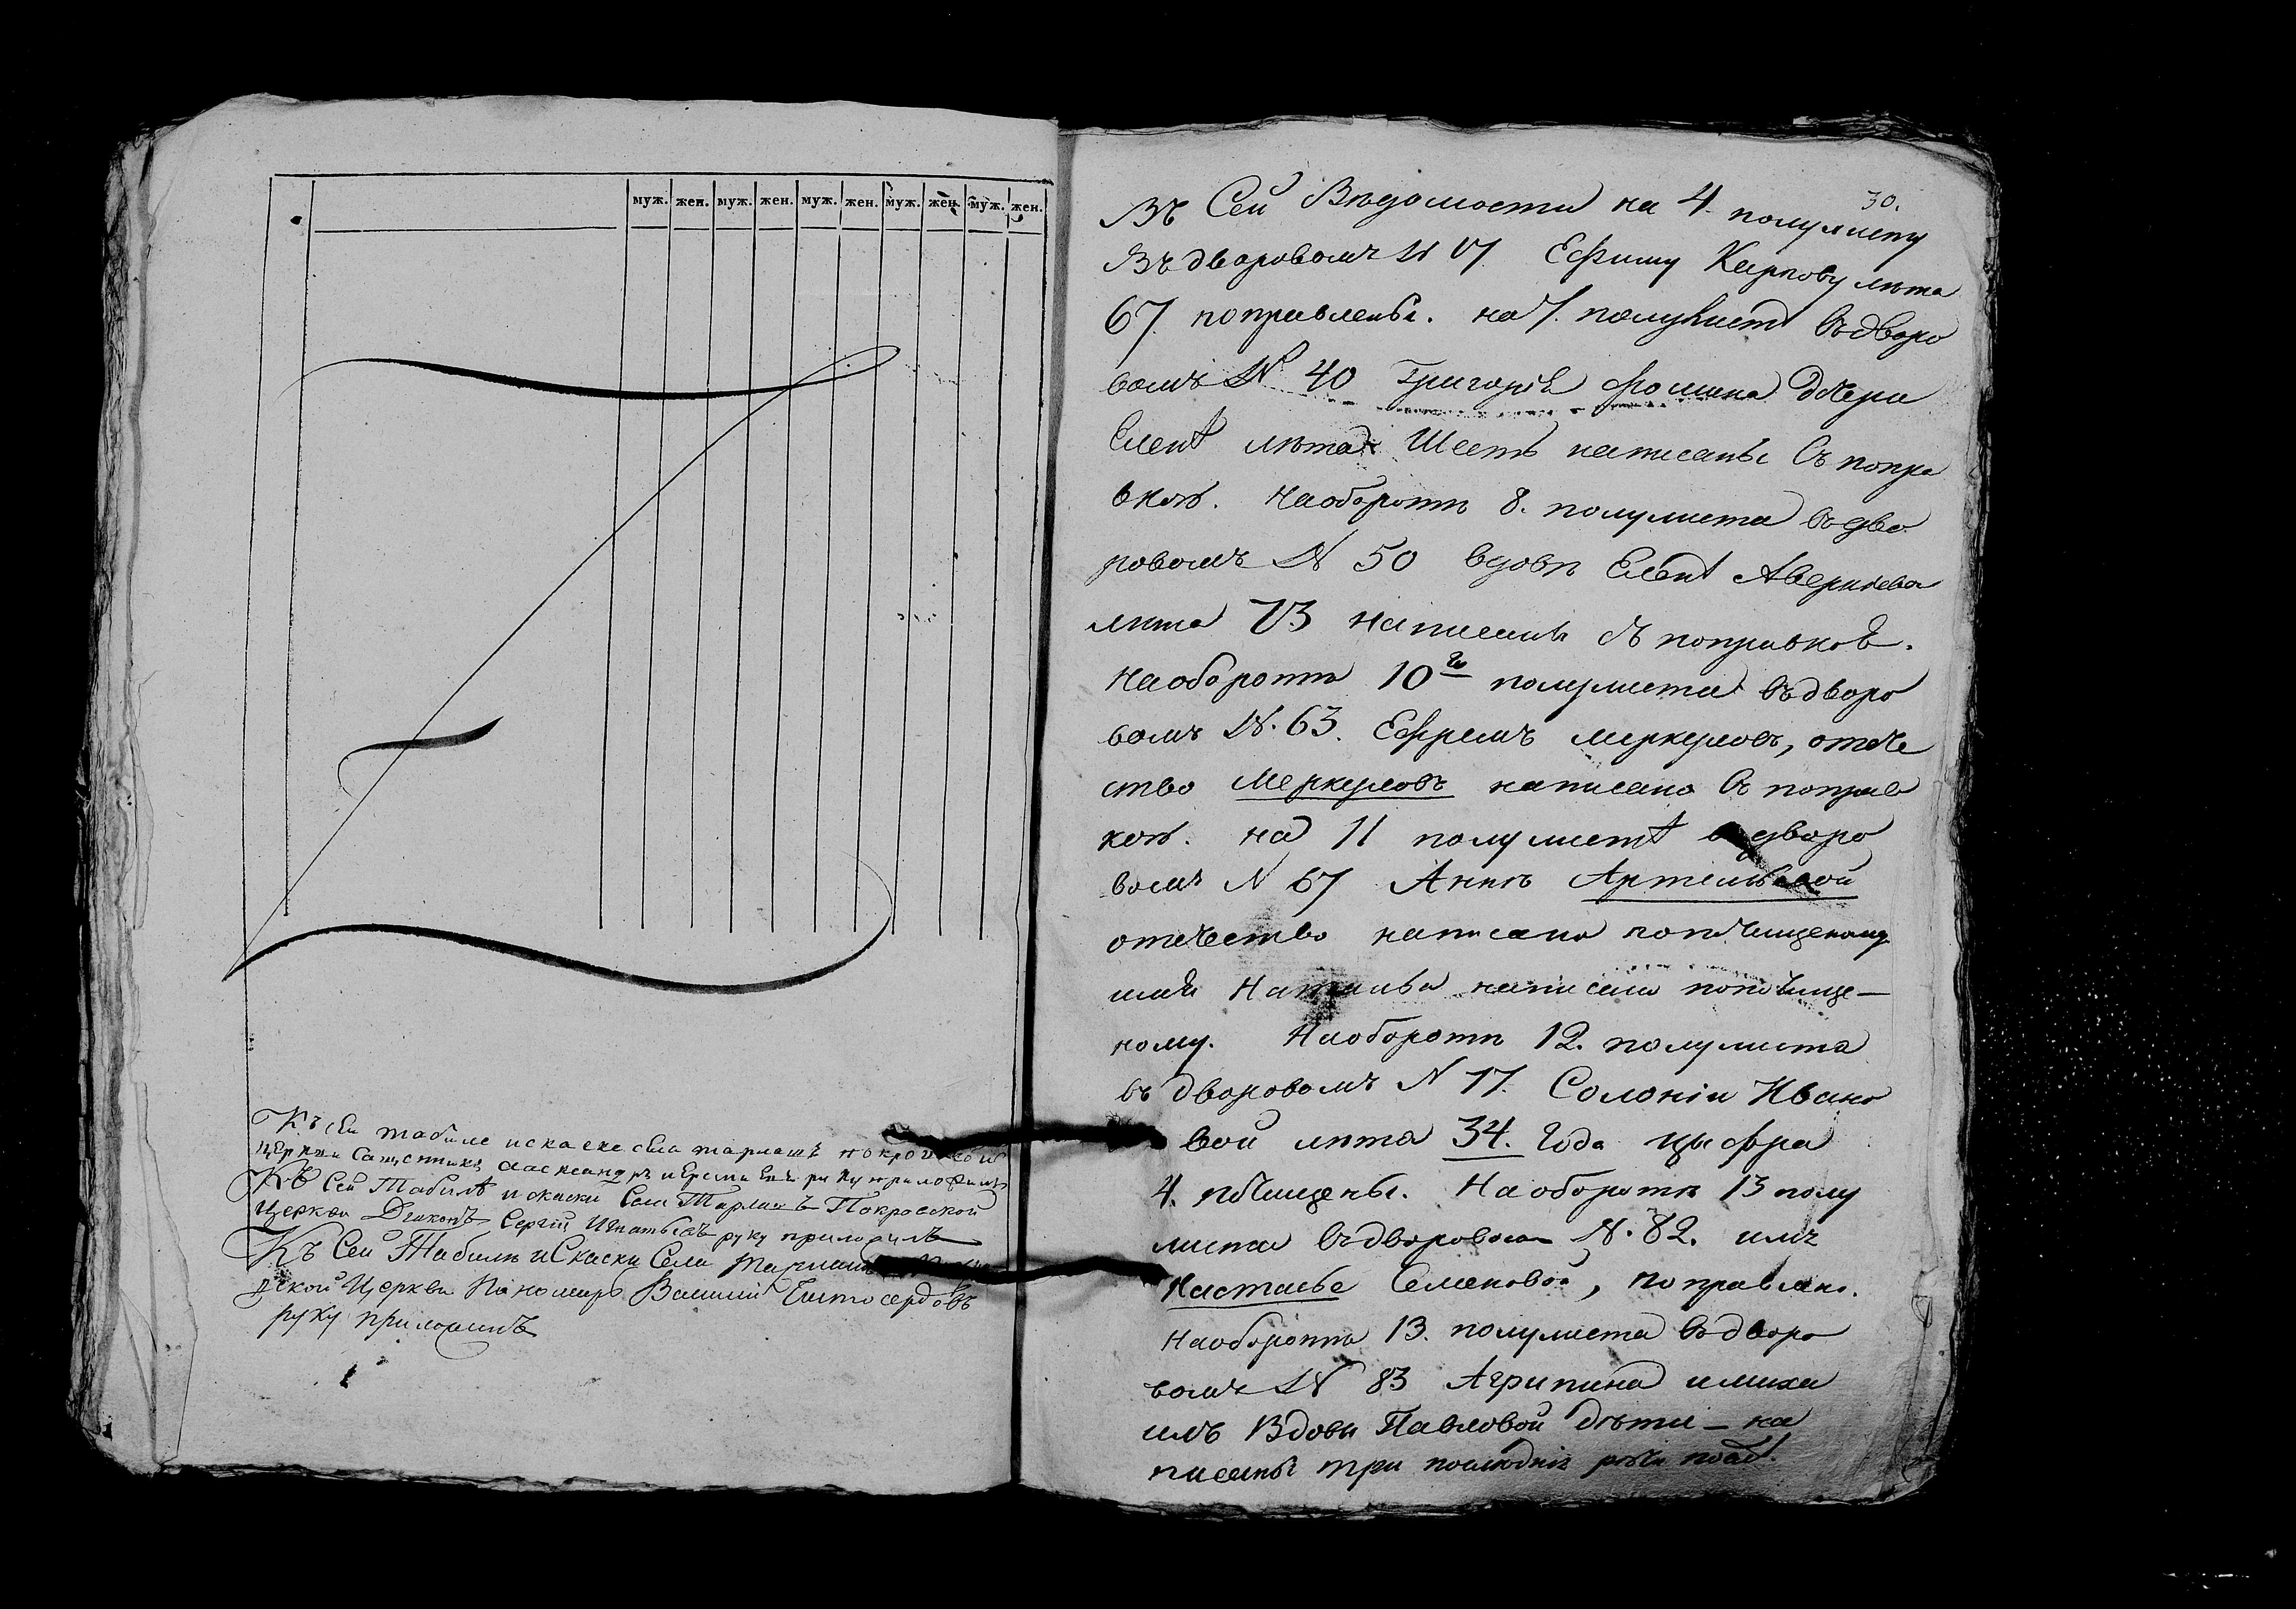 муж. жен. муж. жен. муж. жен. муж. жен. муж. жен.
Къ сей табиле искаске села
церкви Священникъ Александръ руку приложилъ
Къ Сей Табилѣ искаски Села Тарлакъ Покровской
Церкви Дьяконъ Сергiй Игнатьевъ руку приложилъ
Къ Сей Табилѣ иСкаски Села
рской Церкви Пономарь Василий Чистосердовъ
руку приложилъ
30.
Въ Сей Вѣдомости на 4. полулисту
Въ дворовомъ N 17 Ефиму Карпову лѣта
67. поправлены. на 7. полулистѣ въдворо
вомъ N 40 Григорiя Фомина дочери
Еленѣ лѣта Шесть написаны съ попра
вкой. Наоборотѣ 8. полулиста въдво
ровомъ N 50 вдовѣ Еленѣ Аверкиева
лѣта 73 написаны съ поправкой.
Наоборотѣ 10го полулиста въдворо
вомъ N. 63. Ефремъ меркуловъ, отече
ство Меркуловъ написано съ поправ
кой. на 11 полулистѣ въдворо
вомъ N 67 Аннѣ
отечество написано поподчищеному
написано поподчище-
ному. Наоборотѣ 12. полулиста
въ дворовомъ N 77. Солонiи Ивано
вой лѣта 34. Года цыфра
4. подчищены. Наоборотѣ 13 полу
листа въдворовомъ N. 82. имя
Настасье Семеновой, поправлено.
Наоборотѣ 13. полулиста въдворо
вомъ N 83 Агрипина имиха
илъ Вдовы Павловой дѣти - на
писаны три послѣднiя